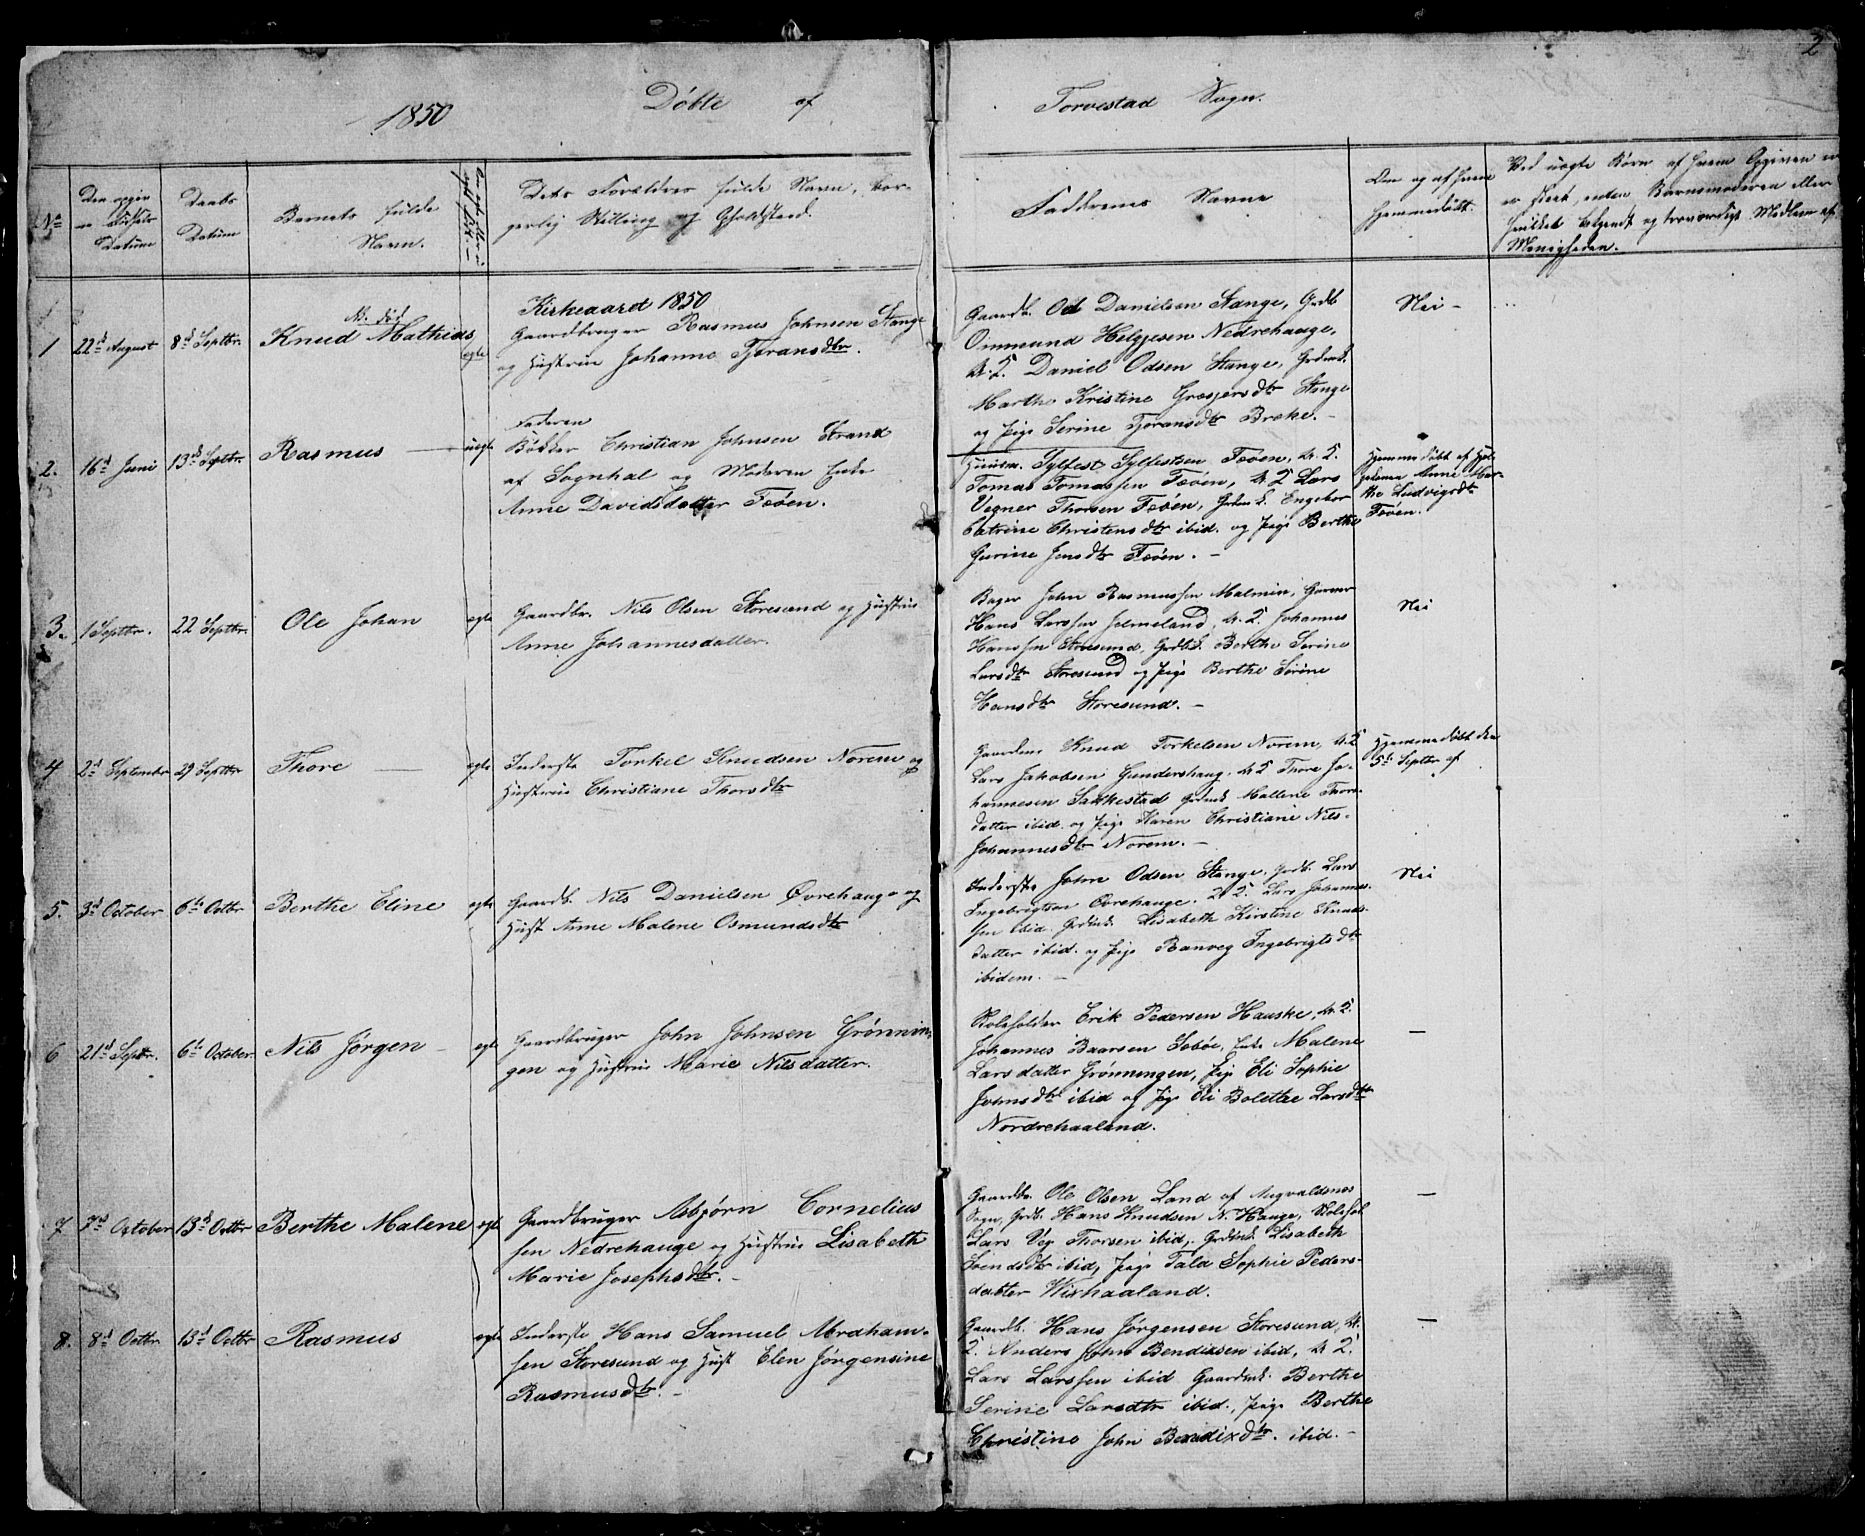 2
1850 Döbte af Torvestad Sogn.
No
Datum
Daabs Datum
Barnets fulde Navn.
Dets Forældres fulde Navn, bor-
gerlig Stilling og Opholdsted.
Faddernes Navne
Om og af hvem
hjemmedöbt.
Ved uægte Börn af hvem Opgiven er
skeet, enten Barnemoderen eller
hvilket og troværdigt Medlem af
Menigheden.
Kirkeaaret 1850
1 22d August 8d Septbr. Knud Mathias egte
Gaardbruger Rasmus Johnsen Stange
og Hustrue Johanne Tjöransdtr.
Gaardb. Od Danielsen Stange, Grdb
Ommund Helgjesen Nedrehauge,
U.K. Daniel Odsen Stange, Grdmk.
Marthe Kristine Grosjersdtr Stange
og Pige Serine Tjöransdtr Breke. -
Nei -
2. 16d Juni 13d Septbr. Rasmus - uegte
Faderen
Bödker Christian Johnsen Strand
af Sognhal og Moderen Enke
Anne Davidsdatter Feöen.
Huusm. Sylfest Sylfestsen Feöen, U.K.
Tomas Tomassen Feöen, U.K Lars
Vegner Thorsen Feöen, Grdmk. Engebor
Catrine Christensdtr ibid. og Pige Berthe
Gurine Jensdtr Feöen. -
Hjemmedöbt af
Anne Mar-
the Ludvigsdtr
Feöen.
3. 1 Septbr. 22 Septbr. Ole Johan egte
Gaardbr. Nils Olsen Storesund og Hustrue
Anne Johannesdatter.
Bager John Rasmussen Malmin, Garver
Hans Larssen Jelmeland, U.K. Johannes
Hanssen Storesund, Grdbk. Berthe Serine
Larsdtr Storesund og Pige Berthe Serine
Hansdtr Storesund. -
Nei
4 2d September 29 Septbr Thore - egte
Inderste Torkel Knudsen Norem og
Hustrue Christiane Thorsdtr
Gaardm. Knud Torkelsen Norem, U.K
Lars Jakobsen Gundershaug. U.K Thore Jo-
hannesen Sakkestad Grdmk Mallene Thors-
datter ibid. og Pige Karen Christiane Nils-
Johannesdtr Norem. -
Hjemmedöbt den
5te Septbr af
5. 3d October 6te Octbr Berthe Eline egte
Gaardb. Nils Danielsen Övrehauge og
Hust Anne Malene Osmundsdtr
Inderste John Odsen Stange. Grdb. Lars
Ingebrigtsen Övrehauge. U.K. Lars Johannes-
sen ibid. Grdmk. Lisabeth Kirstine Knuds-
datter ibid. og Pige Ranveg Ingebrigtsdtr
ibidem. -
Nei
6 21d Septbr. 6te October Nils Jörgen - egte
Gaardbruger John Johnsen Grönnin-
gen og Hustrue Marie Nilsdatter.
Skoleholder Erik Pedersen Hauske, U.K.
Johannes Baarsen Seböe, Enke Malene
Larsdatter Grönningen, Pige Eli Sophie
Johnsdtr ibid og Pige Eli Bolette Larsdtr
Nordrehaaland.
-
7 7d October 13d Octbr Berthe Malene egte
Gaardbruger Asbjørn Cornelius
sen Nedrehauge og Hustrue Lisabeth
Marie Josephsdtr. -
Gaardbr. Ole Olsen Land af Augvaldsnes
Sogn, Grdb. Hans Knudsen N. Hauge, Skolehol
Lars Veg Thorsen ibid, Grdmk. Lisabeth
Svendsdtr ibid, Pige Tala Sophie Peders-
datter Wixhaaland.
-
8. 8d Octbr. 13d Octbr Rasmus egte
Inderste Hans Samuel Abraham-
sen Storesund og Hust Elen Jörgensine
Rasmusdtr. -
Gaardb. Hans Jörgensen Storesund, U.
K. Anders John Bendixsen ibid, U.K.
Lars Larssen ibid Gaardmk. Berthe
Serine Larsdtr ibid., Pige Berthe
Christine John Bendixdtr. ibid. -
-